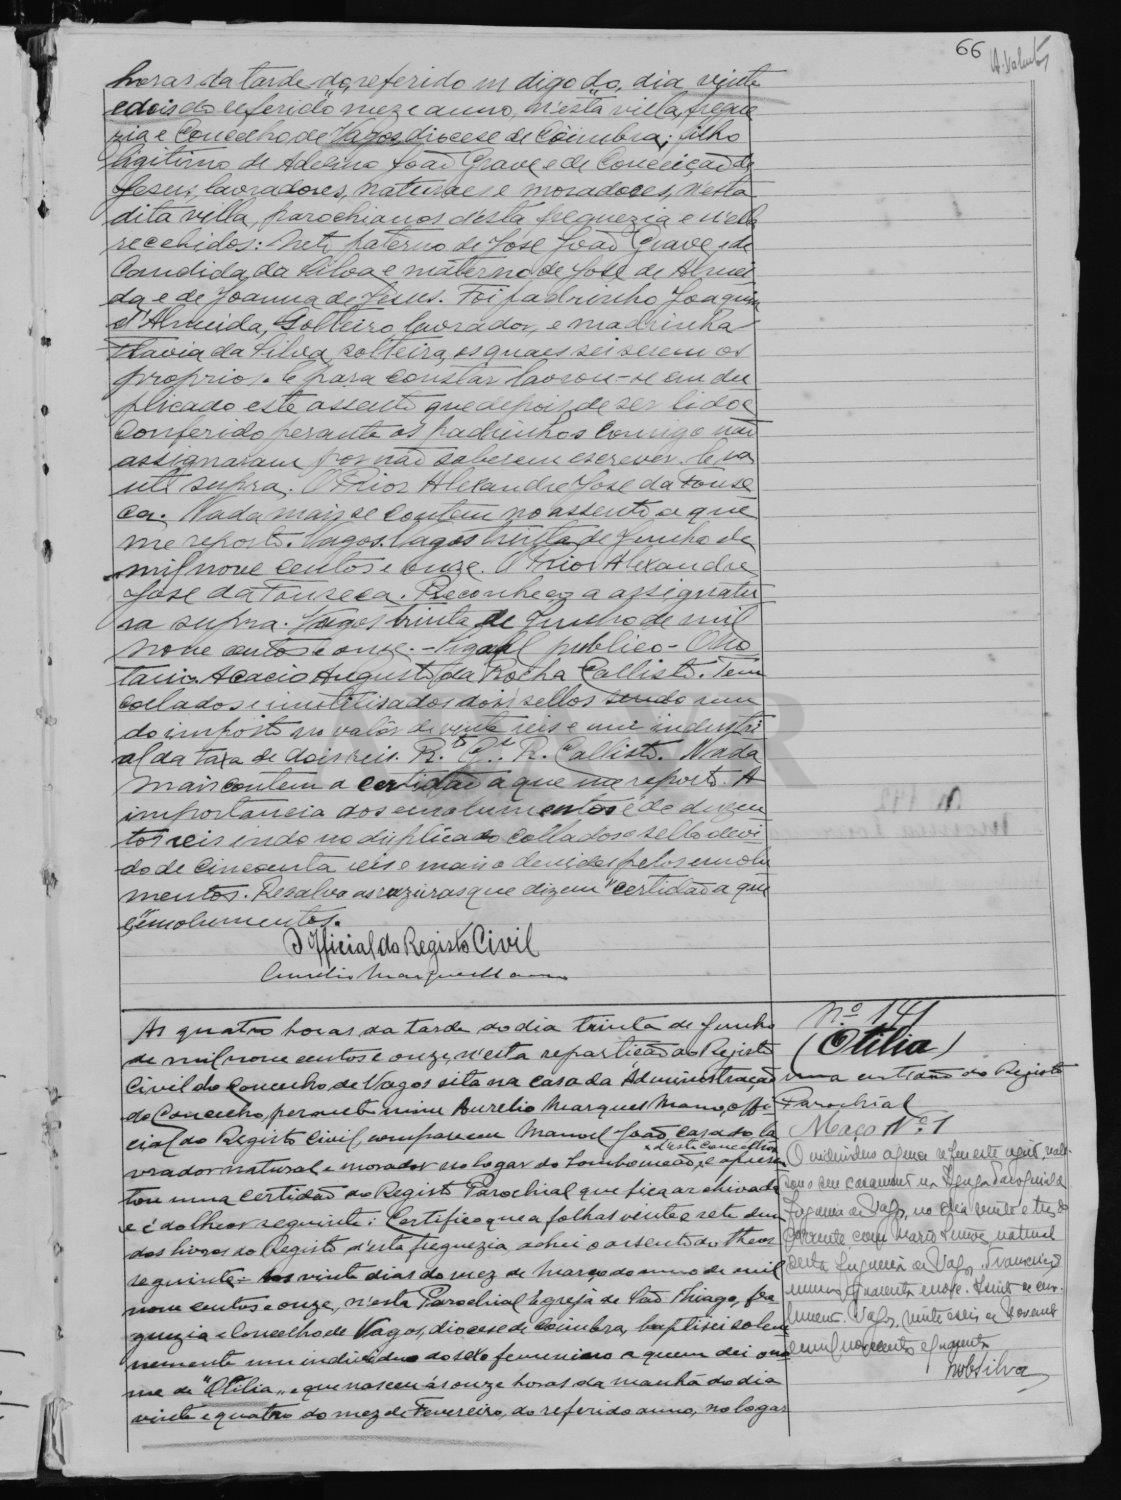 66
horas da tarde do referido m digo do, dia vinte
e dois do referido mez e anno, n'esta villa, fregue
zia e Concelho de Vagos, diocese de Coimbra; filho
legitimo de Adelino João Grave e de Conceição de
Jesus, lavradores, naturaes e moradores, nesta
dita villa, parochianos d'esta freguezia e n'ella
recebidos: Neto paterno de José João Grave e de
Candida da Silva e materno de José de Almei
da e de Joanna de Jesus. Foi padrinho Joaquim
d'Almeida, solteiro, lavrador, e madrinha
Flavia da Silva, solteira, os quaes sei serem os
proprios. E para constar lavrou-se em du
plicado este assento que depois de ser lido e
conferido perante os padrinhos comigo não
assignaram por não saberem escrever. Era
ut supra. O Prior Alexandre José da Fonse
ca. Nada mais se contem no assento a que
me reporto. Vagos. Vagos trinta de Junho de
mil nove centos e onze. O Prior Alexandre
José da Fonseca. Reconheço a assignatu
ra supra. Vagos trinta de Junho de mil
nove centos e onze. - Signal publico - O No
tario Acacio Augusto da Rocha Callisto. Tem
collados e inutilisados dois sellos sendo um
do imposto no valôr de vinte reis e um industri
al da taxa de dois reis. R. Callisto. Nada
mais contem a certidão a que me reporto. A
importancia dos emolumentos é de duzen
tos reis indo no duplicado collados o sello devi
do de cincoenta reis e mais o devidos pelos emolu
mentos. Resalvo as razuras que dizem "certidão a que
e "emolumentos.
O Official do Registo Civil
Aurelio Marques Mano
As quatro horas da tarde do dia trinta de Junho
de mil nove centos e onze, n'esta repartição do Registo
Civil do Concelho de Vagos sita na casa da Administração
do Concelho, perante mim Aurelio Marques Mano, offi
cial do Registo Civil, compareceu Manoel João, casado, la
vrador natural e morador no logar do Lombomeão, d'este Concelho, e apresen
tou uma certidão do Registo Parochial que fica archivada
e é do theor seguinte: Certifico que a folhas vinte e sete dum
dos livros do Registo d'esta freguezia achei o assento do theor
seguinte = Aos vinte dias do mez de Março do anno de mil
nove centos e onze, n'esta Parochial Egreja de São Thiago, fre
guezia e Concelho de Vagos, diocese de Coimbra, baptisei solem
nemente um individuo do sexo femenino a quem dei o no
me de "Otilia" e que nasceu ás onze horas da manhã do dia
vinte e quatro do mez de Fevereiro, do referido anno, no logar
N.º 141
(Otilia)
uma certidão do Registo
Parochial
Maço N.º 1